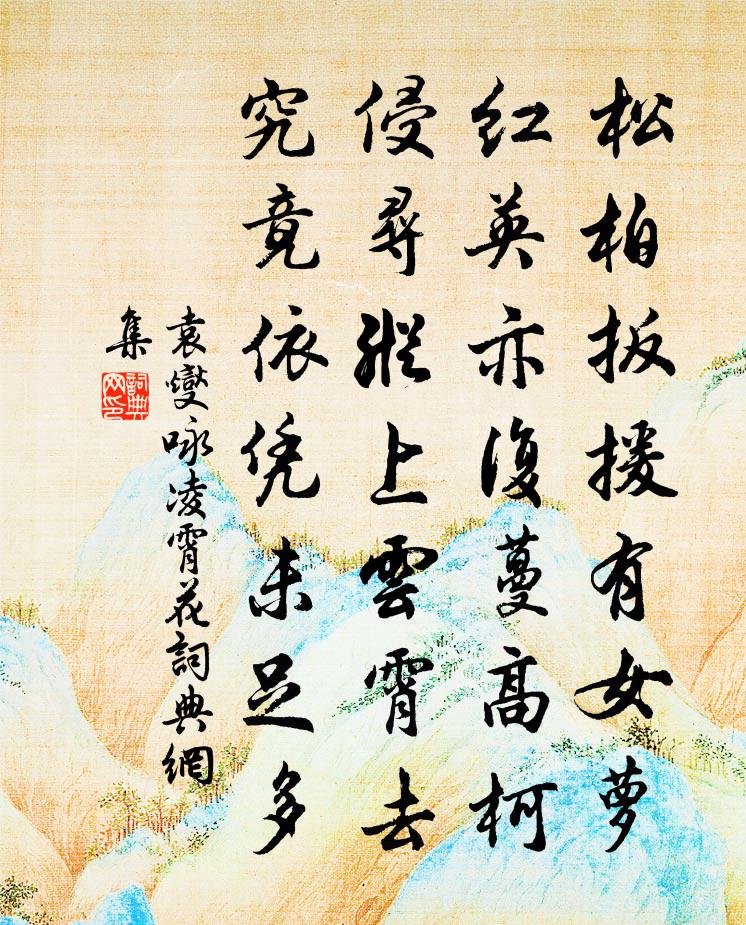 松柏扳援有女萝
红英亦復蔓高柯
侵尋縱上雲霄去
究竟依凭未足多
袁燮咏凌霄花詞典網
集
詞典
网印